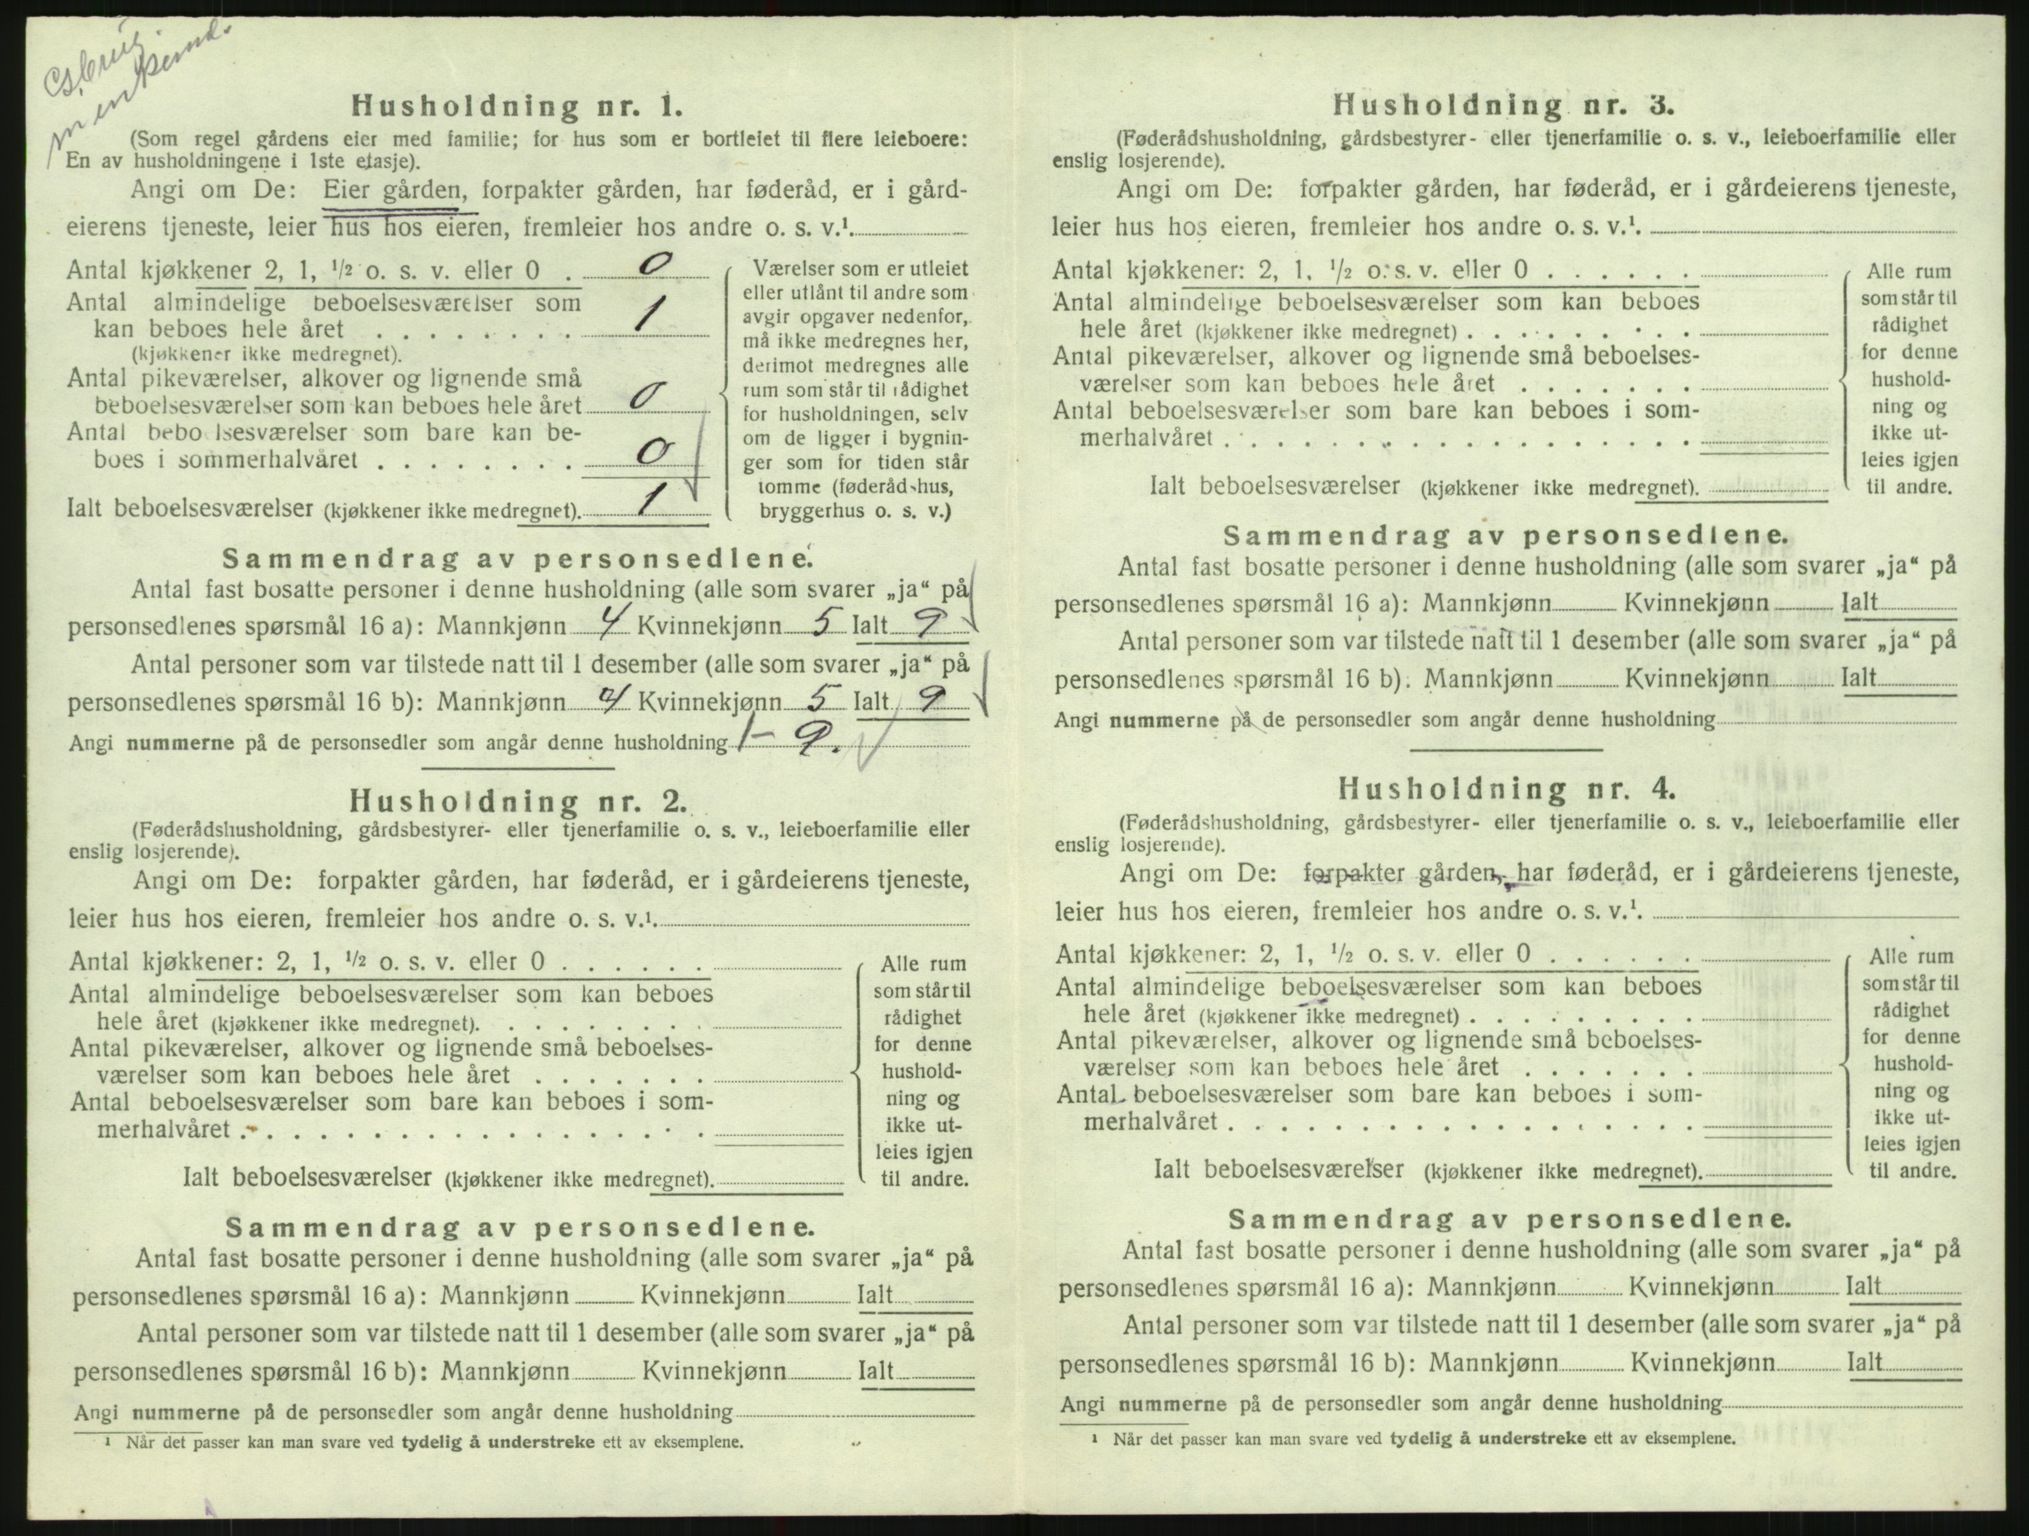 Husholdning nr. 1.
(Som regel gårdens eier med familie; for hus som er bortleiet til flere leieboere:
En av husholdningene i 1ste etasje).
Angi om De: Eier gården, forpakter gården, har føderåd, er i gård-
eierens tjeneste, leier hus hos eieren, fremleier hos andre o. s. v.¹.
Antal kjøkkener 2, 1, ½ o. s. v. eller 0 . 0
Antal almindelige beboelsesværelser som
kan beboes hele året . . . . . . . . 1
(kjøkkener ikke medregnet).
Antal pikeværelser, alkover og lignende små
beboelsesværelser som kan beboes hele året 0
Antal bebo lsesværelser som bare kan be-
boes i sommerhalvåret . . . . . . . . 0
Ialt beboelsesværelser (kjøkkener ikke medregnet). 1
Værelser som er utleiet
eller utlånt til andre som
avgir opgaver nedenfor,
må ikke medregnes her,
derimot medregnes alle
rum som står til rådighet
for husholdningen, selv
om de ligger i bygnin-
ger som for tiden står
tomme (føderådshus,
bryggerhus o. s. v.)
Sammendrag av personsedlene.
Antal fast bosatte personer i denne husholdning (alle som svarer „ja“ på
personsedlenes spørsmål 16 a): Mannkjønn 4 Kvinnekjønn 5 Ialt 9
Antal personer som var tilstede natt til 1 desember (alle som svarer „ja“ på
personsedlenes spørsmål 16 b): Mannkjønn 4 Kvinnekjønn 5 Ialt 9
Angi nummerne på de personsedler som angår denne husholdning 1-9.
Husholdning nr. 2.
(Føderådshusholdning, gårdsbestyrer- eller tjenerfamilie o. s. v., leieboerfamilie eller
enslig losjerende).
Angi om De: forpakter gården, har føderåd, er i gårdeierens tjeneste,
leier hus hos eieren, fremleier hos andre o. s. v.¹.
Antal kjøkkener: 2, 1, ½ o. s. v. eller 0 . . . . . .
Antal almindelige beboelsesværelser som kan beboes
hele året (kjøkkener ikke medregnet). . . . . . . . .
Antal pikeværelser, alkover og lignende små beboelses-
værelser som kan beboes hele året . . . . . . .
Antal beboelsesværelser som bare kan beboes i som-
merhalvåret . . . . . . . . . . . . . . . . .
Ialt beboelsesværelser (kjøkkener ikke medregnet).
Alle rum
som står til
rådighet
for denne
hushold-
ning og
ikke ut-
leies igjen
til andre.
Sammendrag av personsedlene.
Antal fast bosatte personer i denne husholdning (alle som svarer „ja“ på
personsedlenes spørsmål 16 a): Mannkjønn Kvinnekjønn Ialt
Antal personer som var tilstede natt til 1 desember (alle som svarer „ja“ på
personsedlenes spørsmål 16 b): Mannkjønn Kvinnekjønn Ialt
Angi nummerne på de personsedler som angår denne husholdning
¹ Når det passer kan man svare ved tydelig å understreke ett av eksemplene.
Husholdning nr. 3.
(Føderådshusholdning, gårdsbestyrer- eller tjenerfamilie o. s. v., leieboerfamilie eller
enslig losjerende).
Angi om De: forpakter gården, har føderåd, er i gårdeierens tjeneste,
leier hus hos eieren, fremleier hos andre o. s. v.¹.
Antal kjøkkener: 2, 1, ½ o. s. v. eller 0 . . . . . .
Antal almindelige beboelsesværelser som kan beboes
hele året (kjøkkener ikke medregnet) . . . . . . . . .
Antal pikeværelser, alkover og lignende små beboelses-
værelser som kan beboes hele året . . . . . . .
Antal beboelsesværelser som bare kan beboes i som-
merhalvåret . . . . . . . . . . . . . . . . .
Ialt beboelsesværelser (kjøkkener ikke medregnet).
Alle rum
som står til
rådighet
for denne
hushold-
ning og
ikke ut-
leies igjen
til andre.
Sammendrag av personsedlene.
Antal fast bosatte personer i denne husholdning (alle som svarer „ja“ på
personsedlenes spørsmål 16 a): Mannkjønn Kvinnekjønn Ialt
Antal personer som var tilstede natt til 1 desember (alle som svarer „ja“ på
personsedlenes spørsmål 16 b). Mannkjønn Kvinnekjønn Ialt
Angi nummerne på de personsedler som angår denne husholdning
Husholdning nr. 4.
(Føderådshusholdning, gårdsbestyrer- eller tjenerfamilie o. s. v., leieboerfamilie eller
enslig losjerende).
Angi om De: forpakter gården, har føderåd, er i gårdeierens tjeneste,
leier hus hos eieren, fremleier hos andre o. s. v.¹.
Antal kjøkkener: 2, 1, ½ o. s. v. eller 0 . . . . . .
Antal almindelige beboelsesværelser som kan beboes
hele året (kjøkkener ikke medregnet) . . . . . . . . .
Antal pikeværelser, alkover og lignende små beboelses-
værelser som kan beboes hele året . . . . . . .
Antal beboelsesværelser som bare kan beboes i som-
merhalvåret . . . . . . . . . . . . . . . . .
Ialt beboelsesværelser (kjøkkener ikke medregnet).
Alle rum
som står til
rådighet
for denne
hushold-
ning og
ikke ut-
leies igjen
til andre.
Sammendrag av personsedlene.
Antal fast bosatte personer i denne husholdning (alle som svarer „ja“ på
personsedlenes spørsmål 16 a): Mannkjønn Kvinnekjønn Ialt
Antal personer som var tilstede natt til 1 desember (alle som svarer „ja“ på
personsedlenes spørsmål 16 b): Mannkjønn Kvinnekjønn Ialt
Angi nummerne på de personsedler som angår denne husholdning
¹ Når det passer kan man svare ved tydelig å understreke ett av eksemplene.